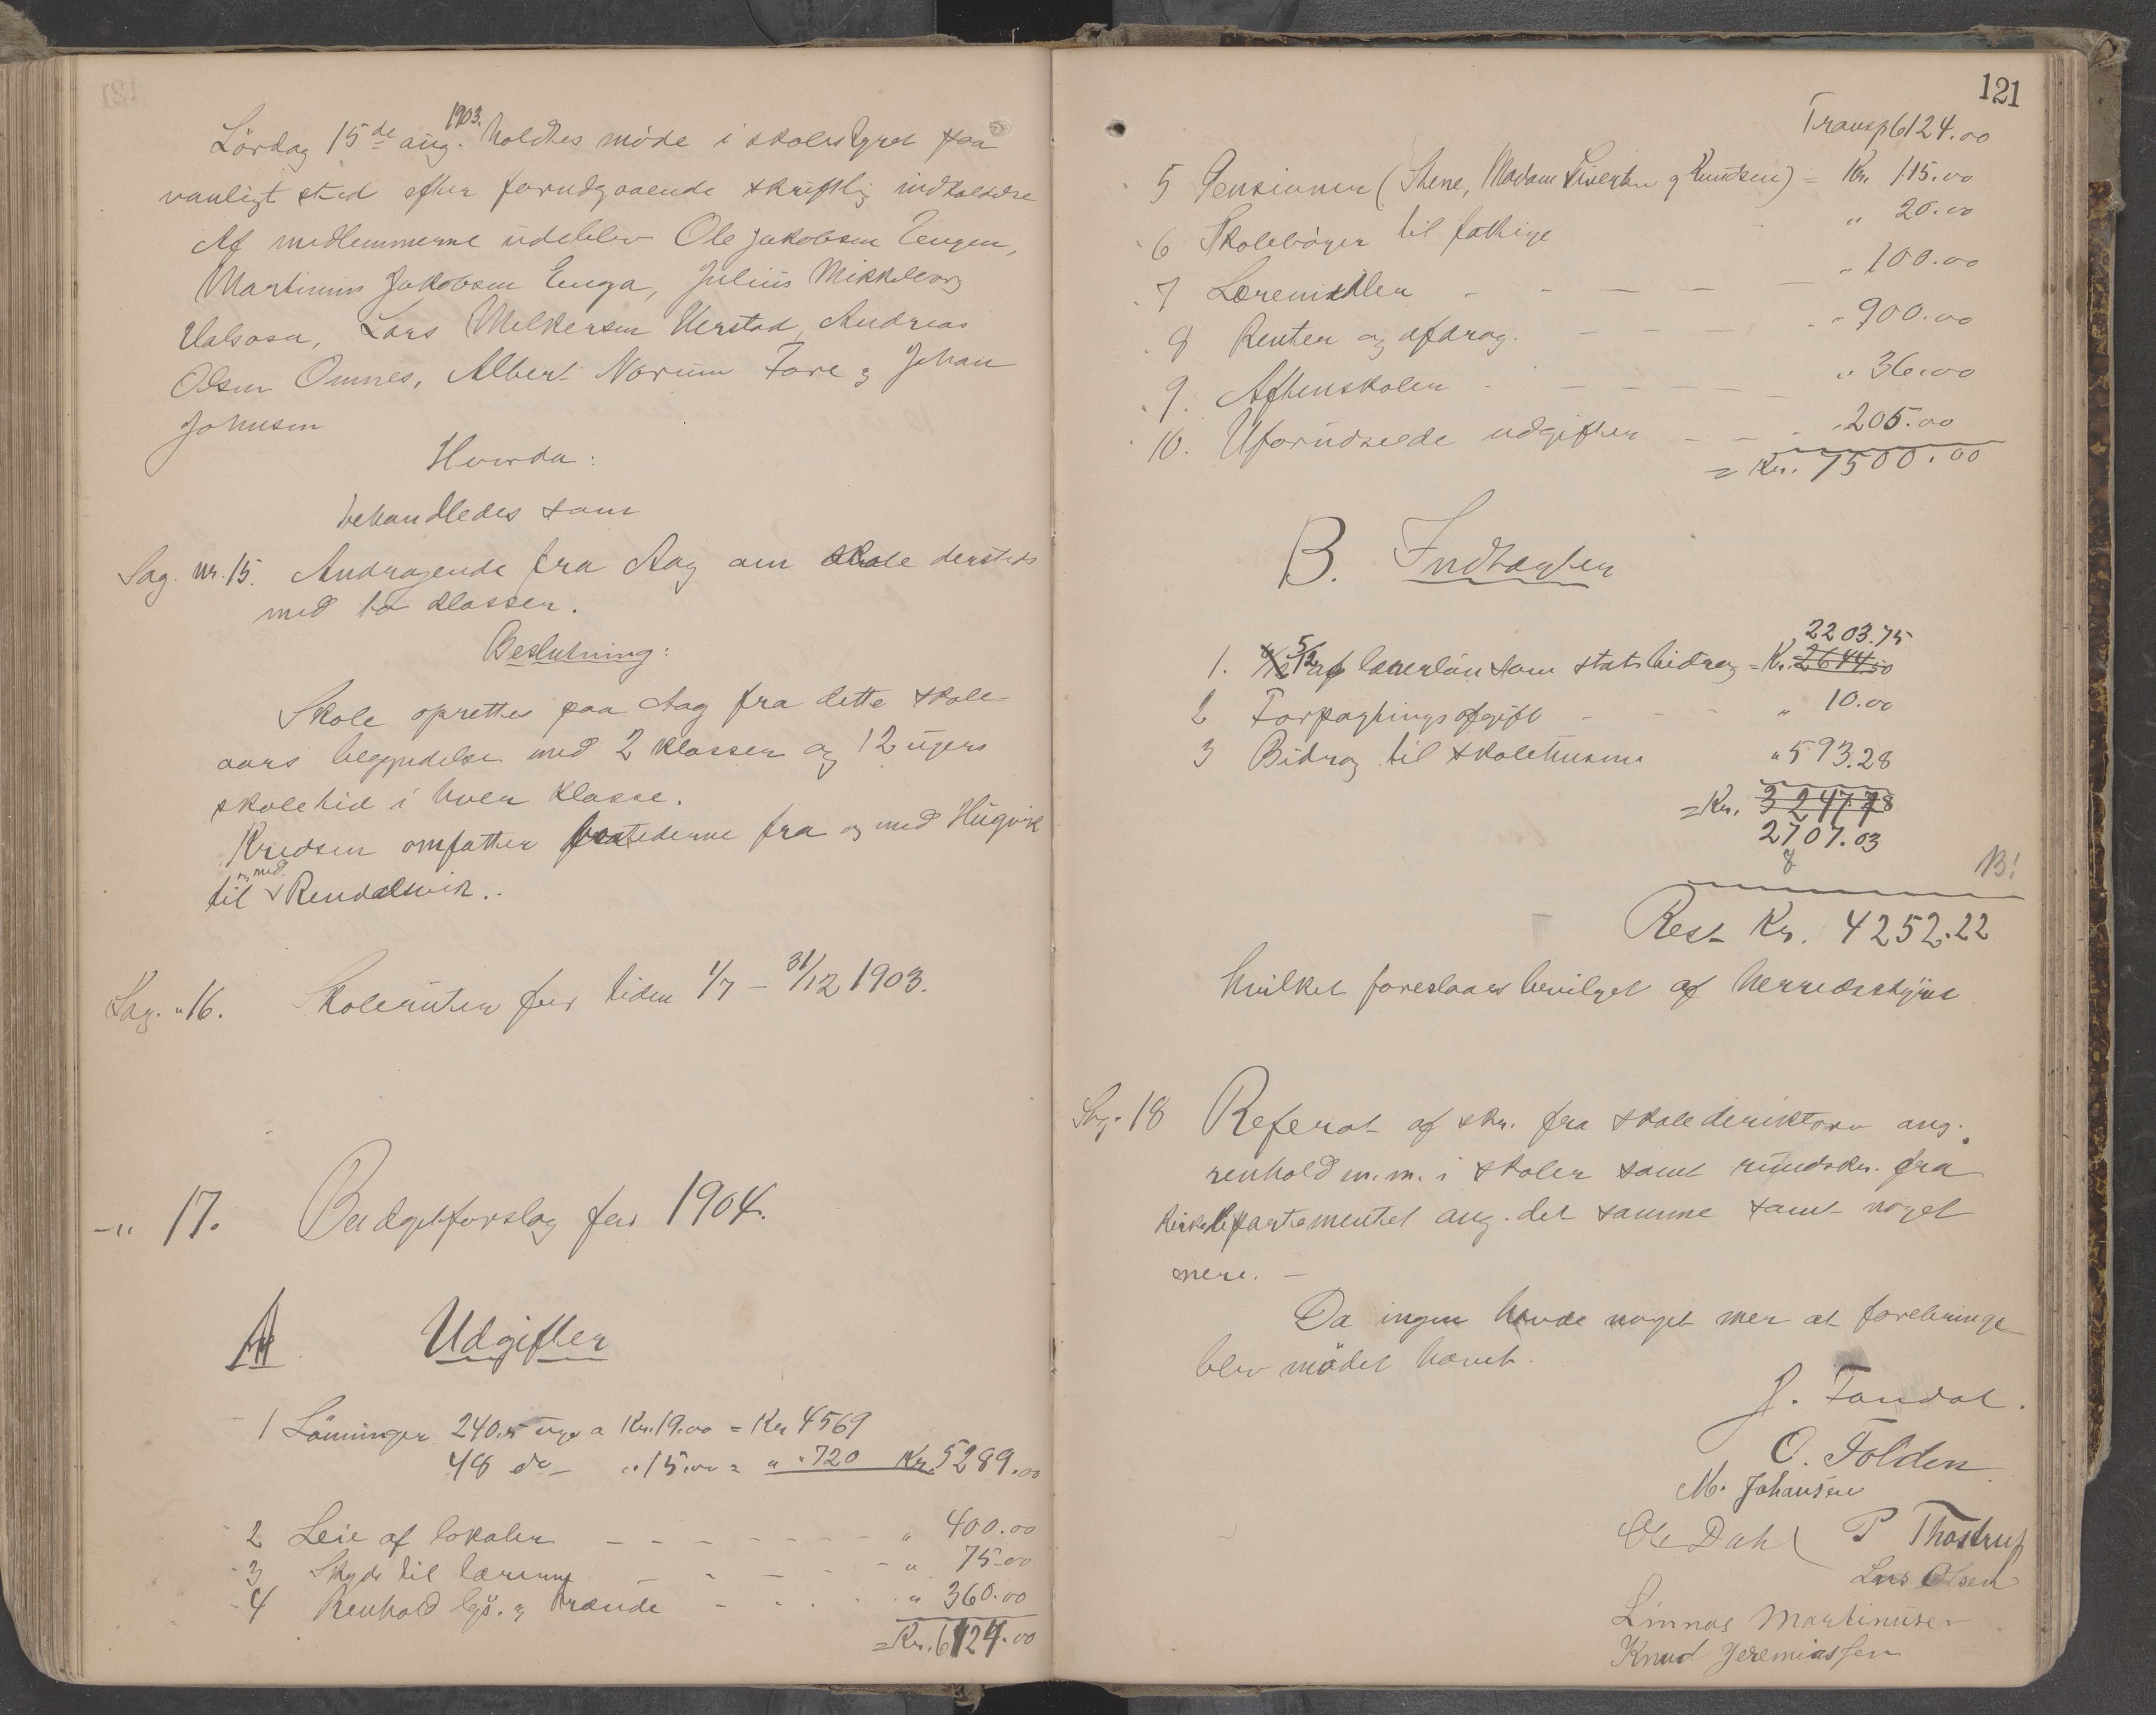 Lördag 15de aug. 1903. holdtes möde i skolestyret paa
vanligt sted efter forudgaaende skriftlig indkaldelse
Af medlemmerne udeblev Ole Jakobsen Eengen,
Martinus Jakobsen Enga, Julius Mikkelborg
Valsosa, Lars Melkersen Værstad, Andreas
Olsen Omnes, Albert Norum Fore og Johan
Johnsen
Hvorda:
behandledes som
Sag. nr. 15. Andragende fra Aag om skole dersteds
med to klasser.
Beslutning:
Skole oprettes paa Aag fra dette skole-
aars begyndelse med 2 klasser og 12 ugers
skoletid i hver klasse.
Kredsen omfatter fra og med Hugvik
til og med Rendalsvik.
Sag. " 16. Skoleruten for tiden 1/7 – 31/12 1903.
–" 17. Budgetforslag for 1904.
A Udgifter
1 Lönninger 240.5 uge a Kr. 19.00 = Kr 4569
48 do – " 15.00 = " 720 Kr. 5289.00
2 Leie af lokaler – – – – – – – " 400.00
3 Skyds til lærerne – – – – – " 75.00
4 Renhold lys. og brænde – . . . . " 360.00
= Kr. 6124.00
121
Transp 6124.00
5 Pensioner (Stene, Madam Sivertsen og Knudsen) = Kr. 115.00
6 Skoleböger til fattige " 20.00
7 Læremidler – – – – – " 100.00
8 Renter og afdrag. – – – " 900.00
9. Aftenskolen – – – – – " 36.00
10. Uforudseede udgifter – – – " 205.00
= Kr. 7500.00
B. Indtægter
2203.75
1. 5/12 af lærerlön som statsbidrag = Kr. 2644.50
2 Forpagtningsafgift – – – " 10.00
3 Bidrag til skolehusene " 593.28
= Kr. 3247.78
2707.03
B!
Rest Kr. 4252.22
hvilket foreslaaes bevilget af herredsstyret
Sag. 18 Referat af skr. fra skoledirektören ang.
renhold m.m. i skoler samt rundskr. fra
kirkedepartementet ang. det samme samt noget
mere. –
Da ingen havde noget mer at forebringe
blev mödet hævet.
J. Fondal.
O. Folden
M. Johansen
Ole Dahl P Thostrup
Lars Olsen
Linnas Martinusen
Knud Jeremiassen